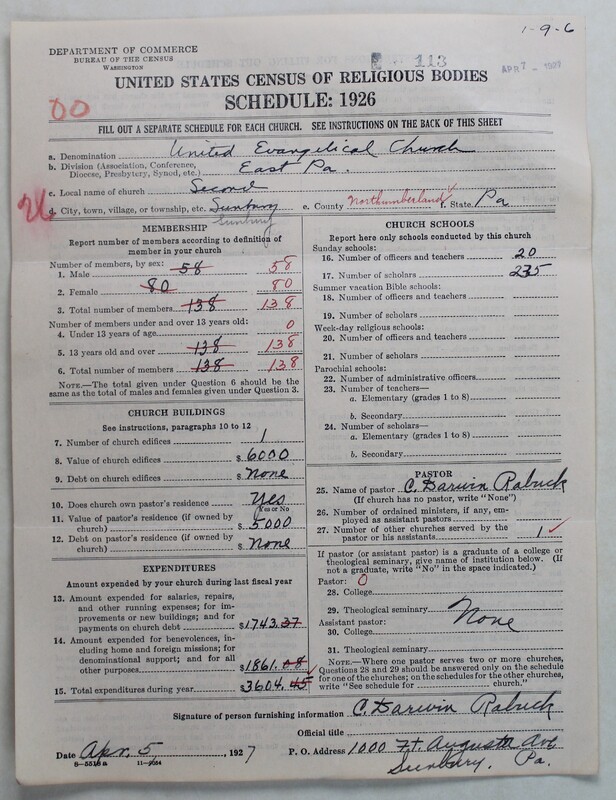 1-9-6
DEPARTMENT OF COMMERCE
BUREAU OF THE CENSUS
WASHINGTON
113
APR 7 - 1927
UNITED STATES CENSUS OF RELIGIOUS BODIES
SCHEDULE: 1926
00
FILL OUT A SEPARATE SCHEDULE FOR EACH CHURCH. SEE INSTRUCTIONS ON THE BACK OF THIS SHEET
a. Denomination United Evangelical Church
b. Division (Association, Conference, Diocese, Presbytery, Synod, etc.) East Pa.
c. Local name of church Second
26
d. City, town, village, or township, etc. Sunbury e. County Northumberland f. State Pa
Sunbury
MEMBERSHIP
Report number of members according to definition of
member in your church
Number of members, by sex:
1. Male 58 58
2. Female 80 80
3. Total number of members 138 138
Number of members under and over 13 years old:
4. Under 13 years of age 0
5. 13 years old and over 138 138
6. Total number of members 138 138
NOTE.—The total given under Question 6 should be the
same as the total of males and females given under Question 3.
CHURCH BUILDINGS
See instructions, paragraphs 10 to 12
7. Number of church edifices 1
8. Value of church edifices $ 6000
9. Debt on church edifices $ None
10. Does church own pastor's residence Yes
Yes or No
11. Value of pastor's residence (if owned by
church) $ 5000
12. Debt on pastor's residence (if owned by
church) $ None
EXPENDITURES
Amount expended by your church during last fiscal year
13. Amount expended for salaries, repairs,
and other running expenses; for im-
provements or new buildings; and for
payments on church debt $1743.37
14. Amount expended for benevolences, in-
cluding home and foreign missions; for
denominational support; and for all
other purposes $1861.08
15. Total expenditures during year $3604.45
CHURCH SCHOOLS
Report here only schools conducted by this church
Sunday schools:
16. Number of officers and teachers 20
17. Number of scholars 235
Summer vacation Bible schools:
18. Number of officers and teachers
19. Number of scholars
Week-day religious schools:
20. Number of officers and teachers
21. Number of scholars
Parochial schools:
22. Number of administrative officers
23. Number of teachers—
a. Elementary (grades 1 to 8)
b. Secondary
24. Number of scholars—
a. Elementary (grades 1 to 8)
b. Secondary
PASTOR
25. Name of pastor C. Darwin Rabuck
(If church has no pastor, write "None")
26. Number of ordained ministers, if any, em-
ployed as assistant pastors
27. Number of other churches served by the
pastor or his assistants 1
If pastor (or assistant pastor) is a graduate of a college or
theological seminary, give name of institution below. (If
not a graduate, write "No" in the space indicated.)
Pastor: 0
28. College
29. Theological seminary None
Assistant pastor:
30. College
31. Theological seminary
NOTE.—Where one pastor serves two or more churches,
Questions 28 and 29 should be answered only on the schedule
for one of the churches; on the schedules for the other churches,
write "See schedule for church."
Signature of person furnishing information C. Darwin Rabuck
Official title
Date Apr. 5, 1927 P. O. Address 1000 Ft. Augusta Ave
Sunbury, Pa.